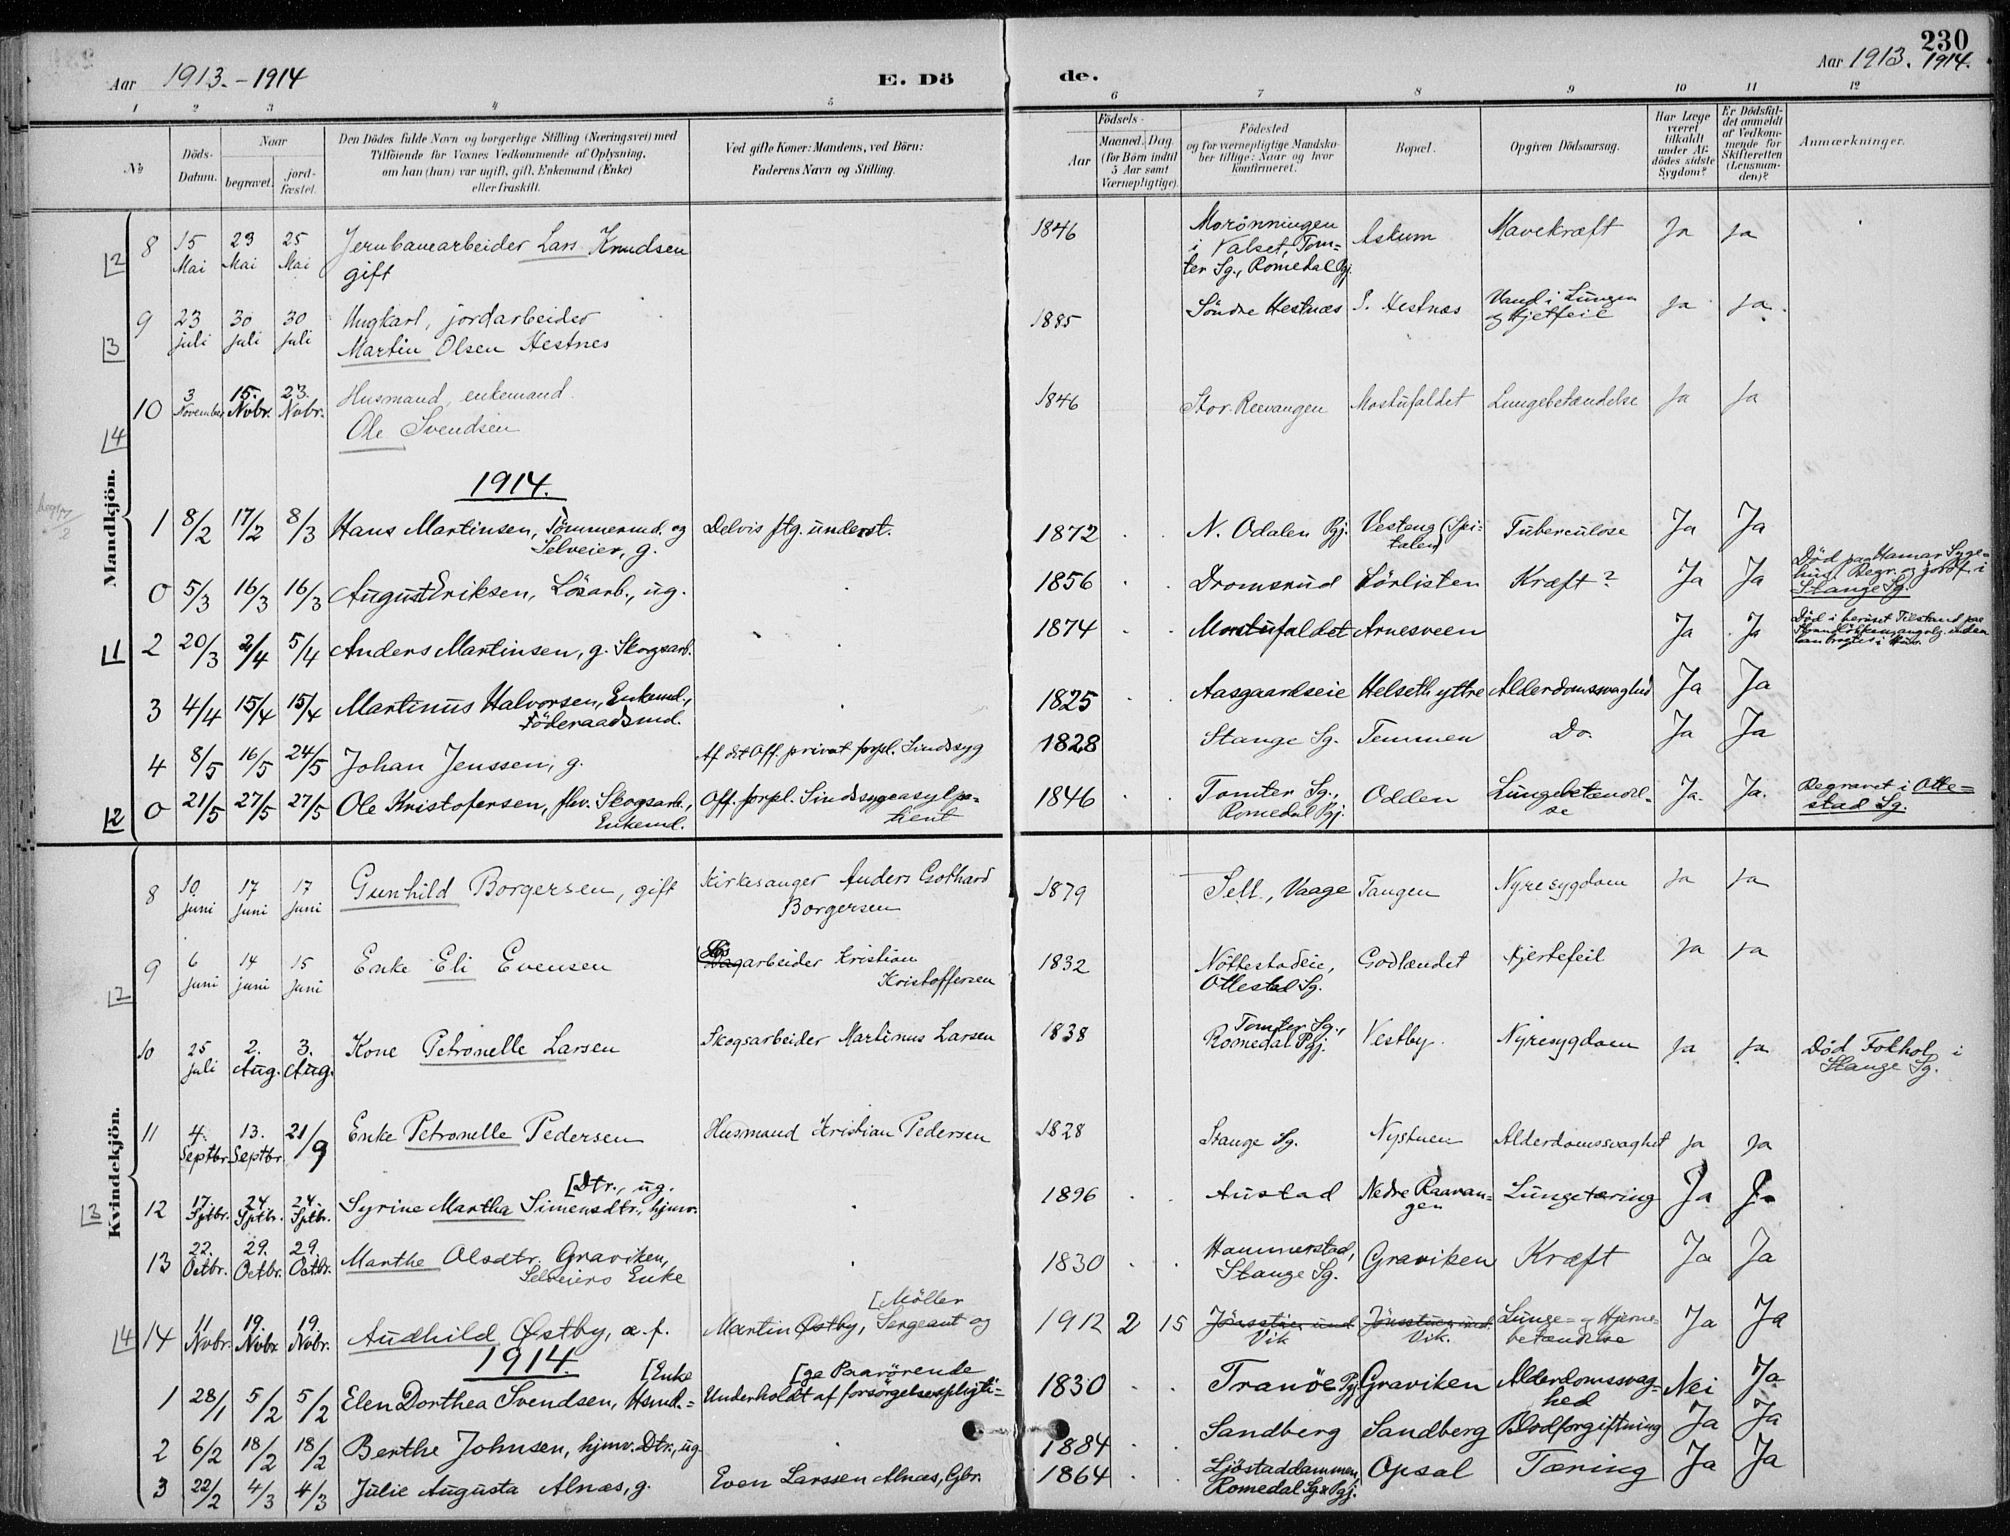 230
Aar 1913.-1914
E. Dö
de.
Aar 1913. 1914.
1 2 3 4 5 6 7 8 9 10 11 12
№
Döds-Datum.
Naar
begravet.
jordfæstet.
Den Dödes fulde Navn og borgerlige Stilling (Næringsvei) med
Tilföiende for Voxnes Vedkommende af Oplysning,
om han (hun) var ugift, gift, Enkemand (Enke)
eller fraskilt.
Ved gifte Koner: Mandens, ved Börn:
Faderens Navn og Stilling.
Födsels-
Aar
Maaned. Dag.
(for Börn indtil
5 Aar samt
Værnepligtige)
Födested
og for værnepligtige Mandskaber tillige: Naar og hvor
konfirmeret.
Bopæl.
Opgiven Dödsaarsag.
Har Læge
været
tilkaldt
under Afdödes sidste
Sygdom?
Er Dödsfaldet anmeldt
af Vedkommende for
Skifteretten
(Lensmanden)?
Anmærkninger.
Mandkjön.
8 15 Mai 23 Mai 25 Mai Jernbanearbeider Lars Knudsen 1846 Morönningen Askum Mavekræft Ja ja
gift i Valset, Tom-
ter Sg., Romedal Pgj.
12
9 23 juli 30 juli 30 juli Ungkarl, jordarbeider 1885 Söndre Hestnæs S. Hestnæs Vand i Lungen ja ja.
Martin Olsen Hestnes og Hjetfeil
13
10 3 November 15. Novbr. 23. Novbr. Husmand, enkemand. 1846 Stor-Reevangen Mostufaldet Lungebetændelse ja ja
Ole Svendsen
14
1914.
1 8/2 17/2 8/3 Hans Martinsen, Tömmermd. og Delvis ftg. underst. 1872 N. Odalen Pgj. Vesteng (Spi- Tuberculose Ja Ja
Selveier, g. talen)
0 5/3 16/3 16/3 August Eriksen, Lösarb., ug. 1856 Dromsrud Sörlisten Kræft? Ja Ja Död paa Hamar Syge-
hus. Begr. og jordf. i
Stange Sg.
11 2 20/3 2/4 5/4 Anders Martinsen, g. Skogsarb. 1874 Mostufaldet Arnesveen Ja Ja Död i beruset Tilstand paa
3 4/4 15/4 15/4 Martinus Halvorsen, Enkemd., 1825 Aasgaardseie Helseth yttre Alderdomssvaghed Ja Ja
Föderaadsmd.
4 8/5 16/5 24/5 Johan Jenssen, g. Af det Off. privat forpl. Sindssyg 1828 Stange Sg. Temmen Do. Ja Ja
12 0 21/5 27/5 27/5 Ole Kristofersen, fhv. Skogsarb., Off. forpl. Sindssygeasylpa- 1846 Tomter Sg., Odden Lungebetændel- Ja. Ja. Begravet i Otte-
Enkemd. tient Romedal Pgj. se stad Sg.
Kvindekjön.
8 10 juni 17 juni 17 juni Gunhild Borgersen, gift Kirkesanger Anders Gothard 1879 Sell, Vaage Tangen Nyresygdom ja ja
Borgersen
9 6 juni 14 juni 15 juni Enke Eli Evensen Lösarbeider Kristian 1832 Nöttestadeie, Godlændet Hjertefeil ja ja
Kristoffersen Ottestad Sg.
12
10 25 juli 2. Aug. 3. Aug. Kone Petronelle Larsen Skogsarbeider Martinus Larsen 1838 Tomter Sg., Vestby. Nyresygdom ja ja Död Fokhol i
Romedal Pgj. Stange Sg.
11 4. Septbr. 13. Septbr. 21/9 Enke Petronelle Pedersen Husmand Kristian Pedersen 1828 Stange Sg. Nystuen Alderdomssvaghet ja ja
[Dtr., ug.
13 12 17. Sptbr. 24. Sptbr. 24. Sptbr. Syrine Martha Simensdtr., hjmv. 1896 Austad Nedre Raavan- Lungetæring Ja Ja
gen
13 22. Octbr. 29. Octbr. 29. Octbr. Marthe Olsdtr. Graviken, 1830 Hammerstad, Graviken Kræft Ja Ja
Selveiers Enke Stange Sg.
[Möller
14 14 11 Novbr. 19. Novbr. 19. Novbr. Audhild Østby, æ. f. Martin Østby, Sergeant og 1912 2 15 Vik Vik. Lunge- og Hjerne- Ja Ja
betændelse
1914.
[Enke [ge Paarörende
1 28/1 5/2 5/2 Elen Dorthea Svendsen, Hsmd.- Underholdt af forsörgelsespligti- 1830 Tranöe Pgj. Graviken Alderdomssvag- Nei Ja
hed
2 6/2 18/2 18/2 Berthe Johnsen, hjmv. Dtr., ug 1884 Sandberg Sandberg Blodforgiftning Ja Ja
3 22/2 4/3 4/3 Julie Augusta Alnæs, g. Even Larssen Alnæs, Gbr. 1864 Ljöstaddammen, Opsal Tæring Ja Ja
Romedal Sg. & Pgj.